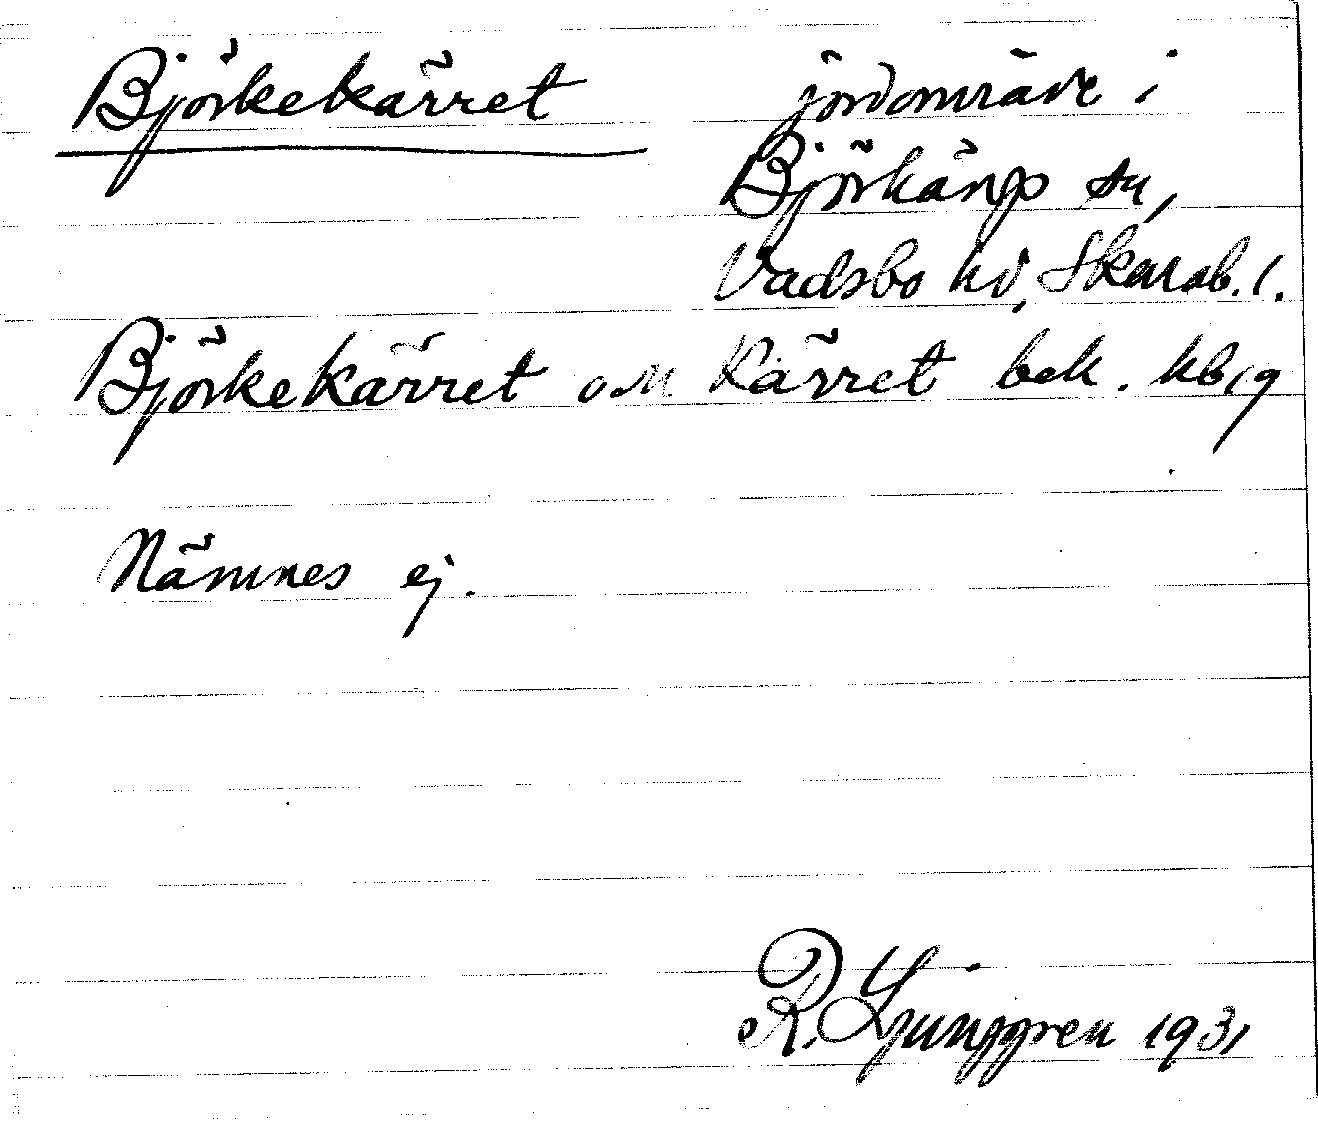 Björkekärret jordområde i
Björkängs sn,
Vadsbo hd, Skarab. l.
Björkekärret o Kärret bek. kbr 9
Nämnes ej.
R. Ljunggren 1931